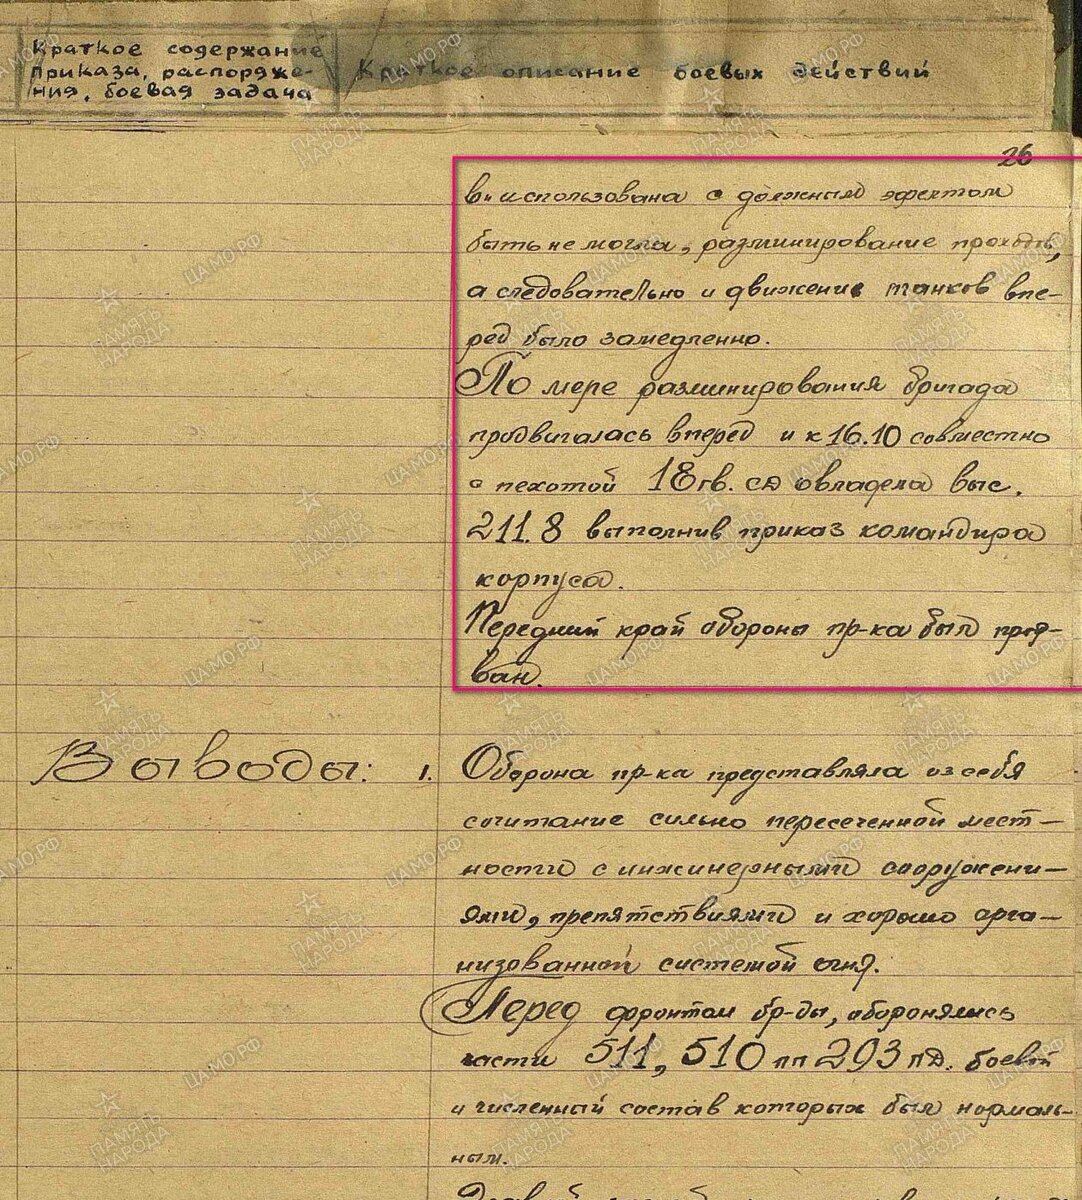 Краткое содержание
приказа, распоряже-
ния, боевая задача
Краткое описание боевых действий
26
использована с должным эфектом
быть не могла, разминирование проходов,
а следовательно и движение танков впе-
ред было замедленно.
По мере разминирования бригада
продвигалась вперед и к 16.10 совместно
с пехотой 18 гв. сд овладела выс.
211.8 выполнив приказ командира
корпуса.
Передний край обороны пр-ка был прор-
ван.
Выводы: 1. Оборона пр-ка представляла из себя
сочитание сильно пересеченной мест-
ности с инжинерными сооружени-
ями, препятствиями и хорошо орга-
низованной системой огня.
Перед фронтом бр-ды, оборонялись
части 511, 510 пп 293 пд. боевой
и численный состав которых был нормаль-
ным.
ЦАМО.РФ
ПАМЯТЬ
НАРОДА